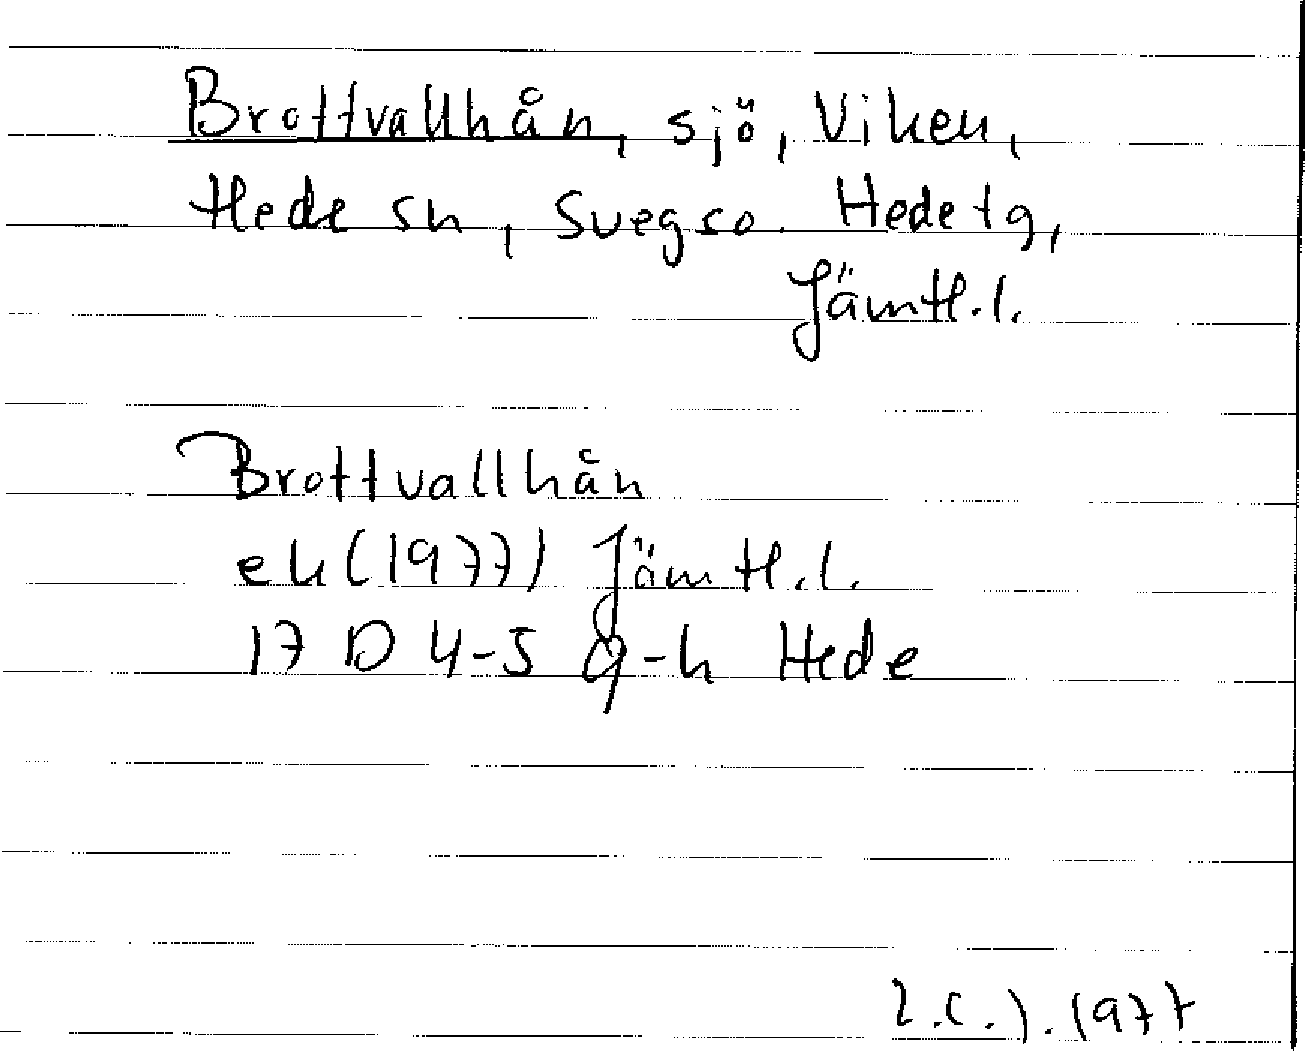 Brottvallhån, sjö, Viken,
Hede sn, Svegs o. Hede tg,
Jämtl. l.
Brottvallhån
ek (1977) Jämtl. l.
17 D 4-5 g-h Hede
1977